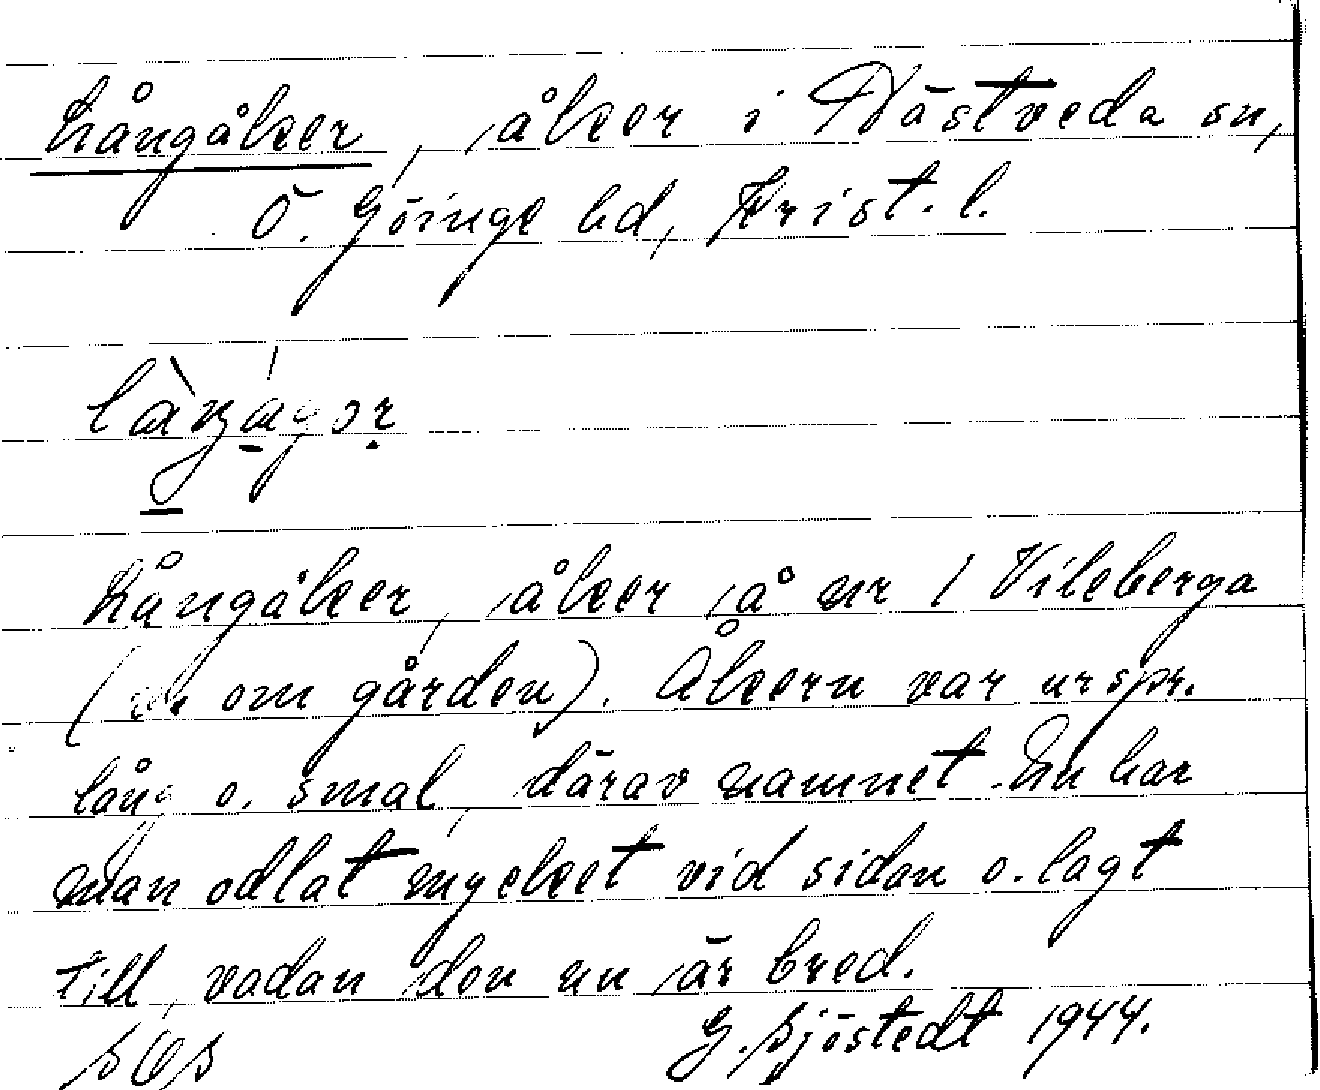 Långåker, åker i Västveda sn,
Ö. Göinge hd, Krist. l.
Långåker, åker å nr 1 Vileberga
(ch om gården). Åkern var urspr.
lång o. smal, därav namnet. Nu har
man odlat mycket vid sidan o. lagt
till, vadan den nu är bred.
SOS G. Sjöstedt 1944.